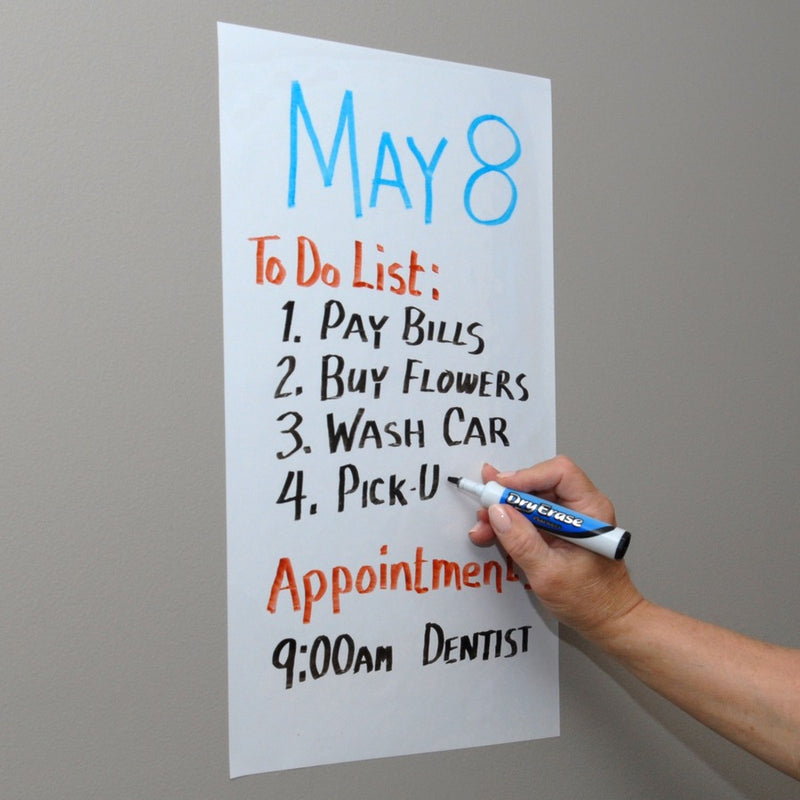 MAY 8
To Do List:
1. PAY BILLS
2. BUY FLOWERS
3. WASH CAR
4. PICK-U
Appointment
9:00AM DENTIST
Dry Erase